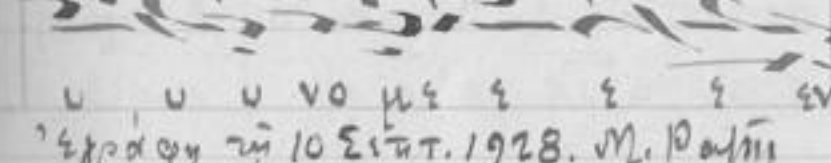 υ υ υ νο με ε ε ε εν
Ἐγράφη τῇ 10 Σεπτ. 1928. Μ.